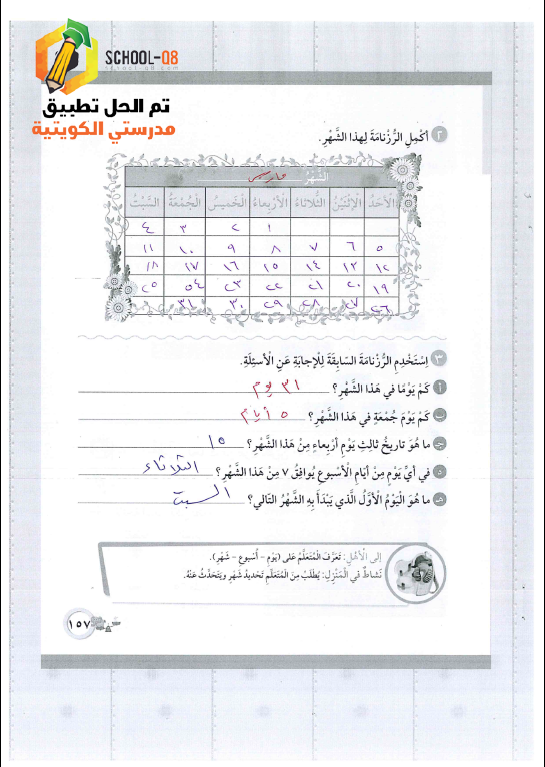 SCHOOL-Q8
school-q8.com
تم الحل تطبيق
مدرستي الكويتية
٢ أَكْمِلِ الرُّزْنامَةَ لِهذا الشَّهْرِ.
الشَّهْرُ مارس
الْأَحَدُ الْاِثْنَيْنُ الثُّلاثاءُ الْأَرْبِعاءُ الْخَميسُ الْجُمُعَةُ السَّبْتُ
١ ٢ ٣ ٤
٥ ٦ ٧ ٨ ٩ ١٠ ١١
١٢ ١٣ ١٤ ١٥ ١٦ ١٧ ١٨
١٩ ٢٠ ٢١ ٢٢ ٢٣ ٥٤ ٢٥
٢٦ ٢٧ ٢٨ ٢٩ ٣٠ ٣١
٣ اِسْتَخْدِمِ الرُّزْنامَةَ السّابِقَةَ لِلْإِجابَةِ عَنِ الْأَسْئِلَةِ.
أ كَمْ يَوْمًا في هٰذا الشَّهْرِ؟ ٣١ يوم
ب كَمْ يَوْمَ جُمُعَةٍ في هٰذا الشَّهْرِ؟ ٥ أيام
ج ما هُوَ تاريخُ ثالِثِ يَوْمِ أَرْبِعاءٍ مِنْ هٰذا الشَّهْرِ؟ ١٥
د في أَيِّ يَوْمٍ مِنْ أَيّامِ الْأُسْبوعِ يُوافِقُ ٧ مِنْ هٰذا الشَّهْرِ؟ الثلاثاء
هـ ما هُوَ الْيَوْمُ الْأَوَّلُ الَّذي يَبْدَأُ بِهِ الشَّهْرُ التّالي؟ السبت
إلى الْأَهْلِ: تَعَرَّفَ الْمُتَعَلِّمُ عَلى (يَوْمٍ – أُسْبوعٍ – شَهْرٍ).
نَشاطٌ في الْمَنْزِلِ: يُطْلَبُ مِنَ الْمُتَعَلِّمِ تَحْديدُ شَهْرٍ وَيَتَحَدَّثُ عَنْهُ.
١٥٧